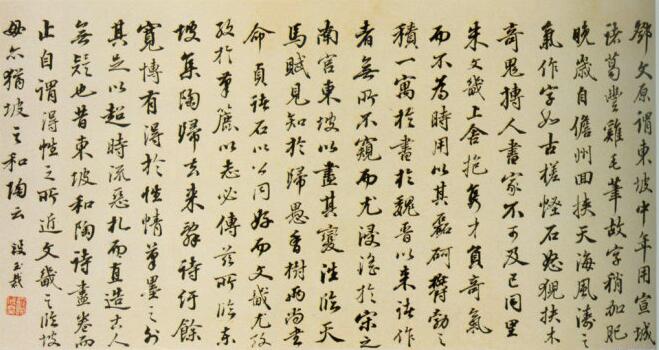 鄧文原謂東坡中年用宣城
諸葛豐雞毛筆故字稍加肥
晚歲自儋州回挾天海風濤之
氣作字如古槎怪石怒猊抉木
奇鬼搏人書家不可及已同里
朱文畿上舍抱雋才負奇氣
而不為時用以其磊砢欝勃之
積一寓於書於魏晉以來諸作
者無所不窺而尤浸淫於宋之
南宮東坡以盡其變法臨天
馬賦見知於歸愚香樹兩尚書
命貞諸石以公同好而文畿尤
於以志必傳茲所臨東
坡集陶歸去來辭詩紆餘
寬博有得於性情筆墨之外
其足以超時流惡札而直造古人
無疑也昔東坡和陶詩盡卷而
止自謂得性之所近文畿之臨坡
毋亦猶坡之和陶云 段玉裁